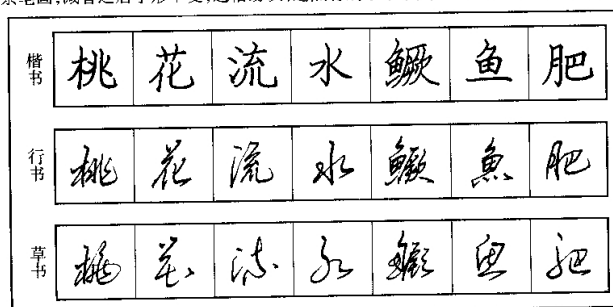 楷书 桃花流水鳜鱼肥
行书 桃花流水鳜魚肥
草书 桃花流水鳜鱼肥